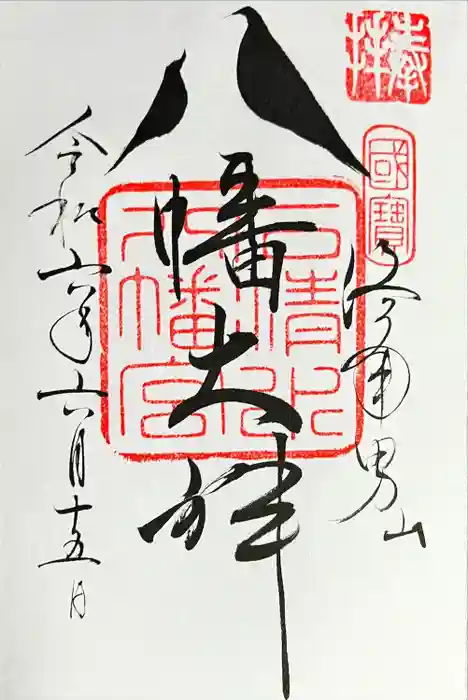 奉拝
國寶
洛南男山
八幡大神
石清水
八幡宮
令和六年六月十五日